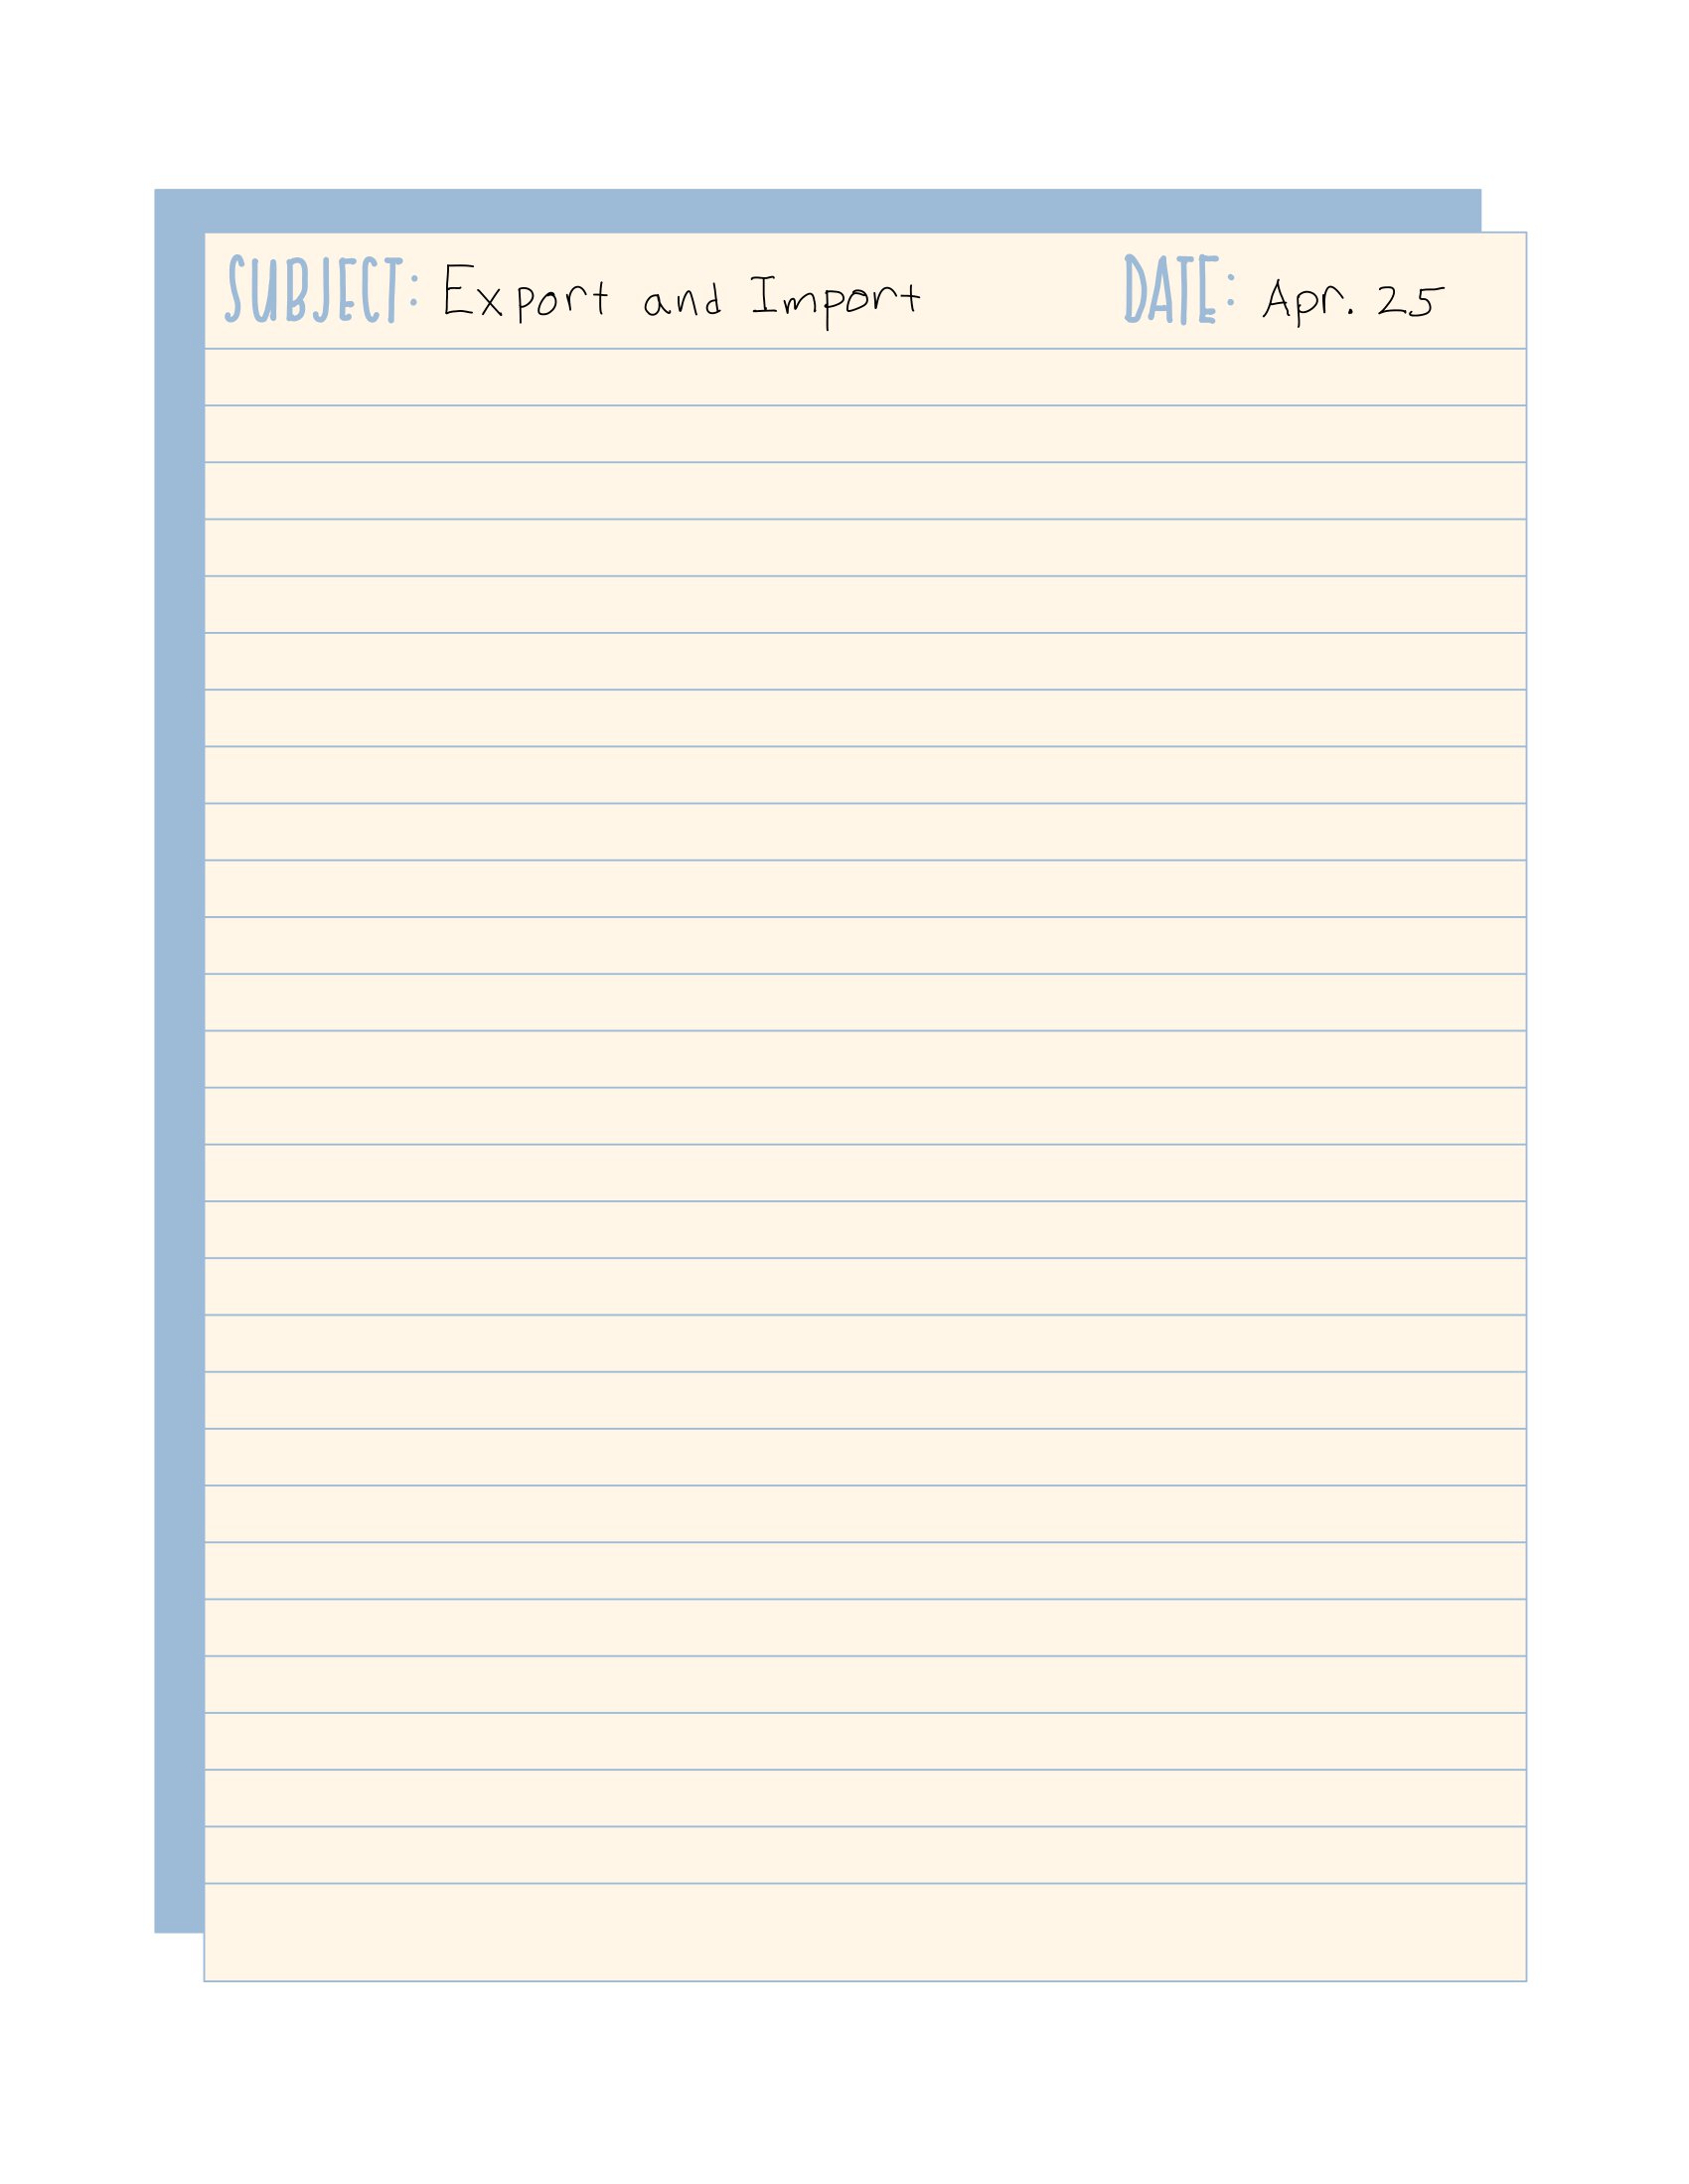 SUBJECT: Export and Import DATE: Apr. 25